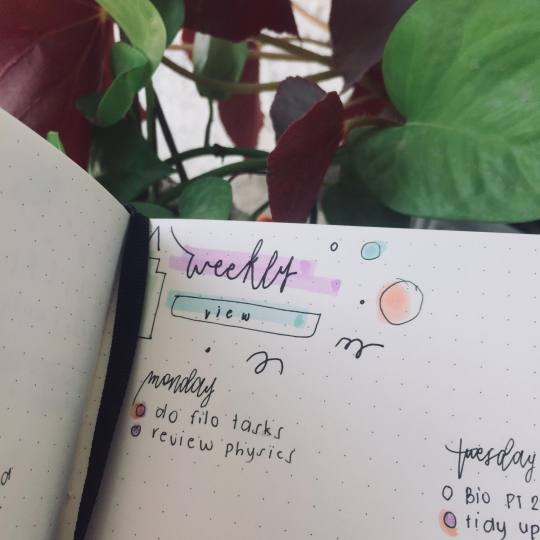 weekly
view
monday
do filo tasks
review physics
tuesday
Bio PT 2
tidy up